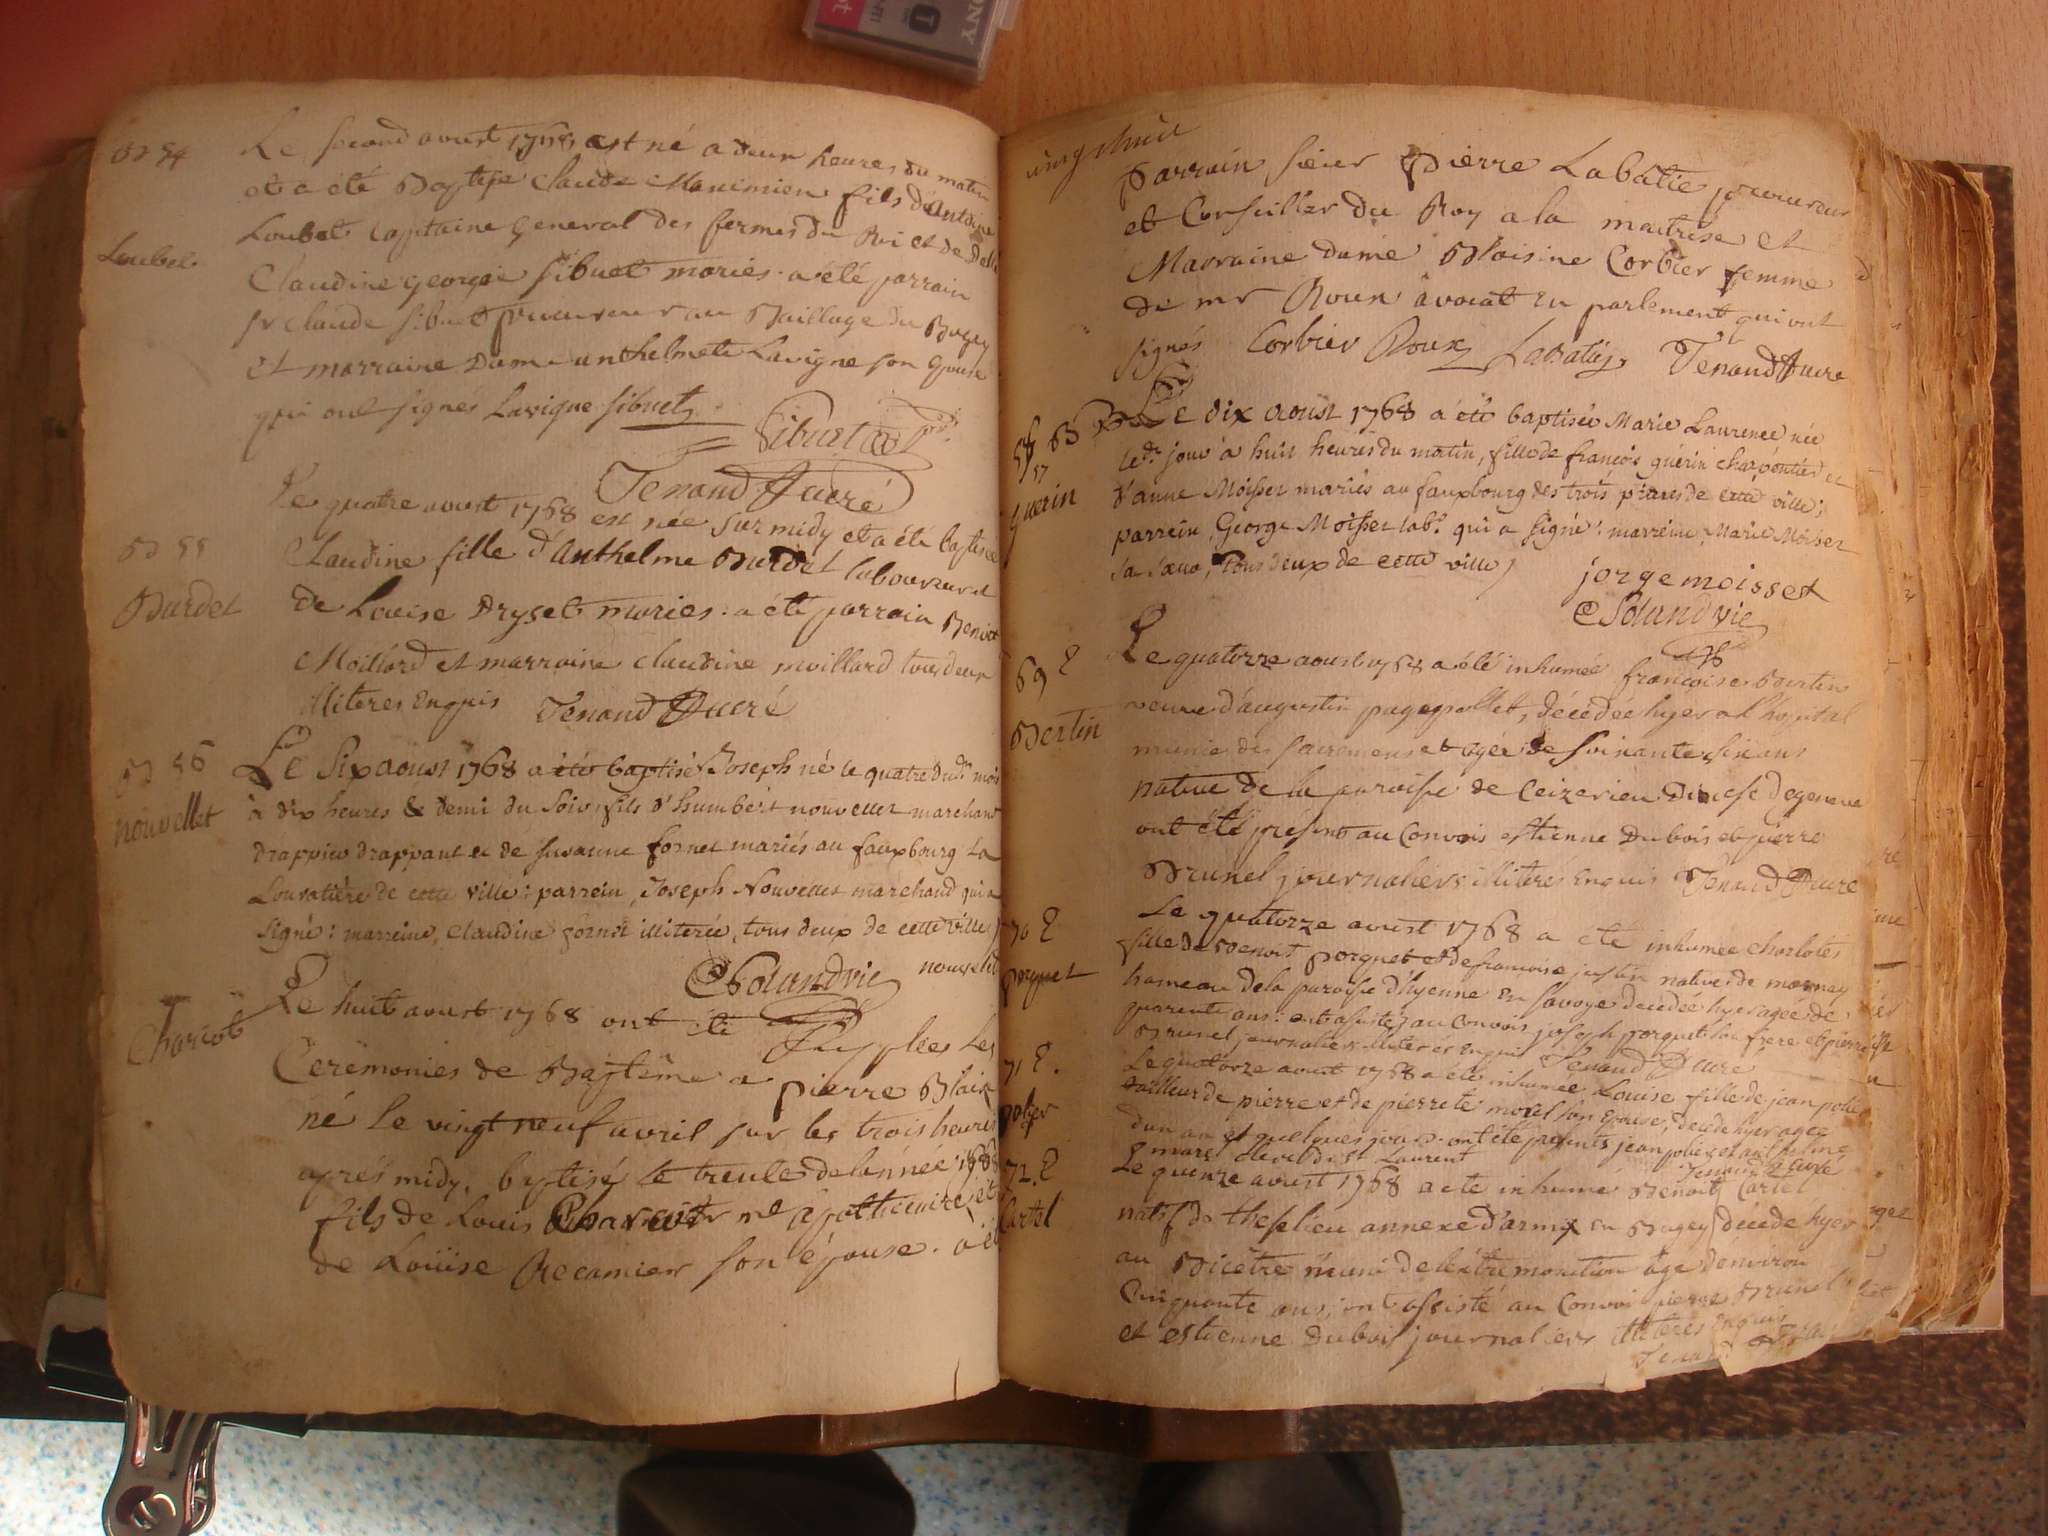 B 54
Le second aoust 1768 est né a deux heures du matin
et a été Baptisé Claude Maximien fils d'Antoine
Loubet
Loubet Capitaine General des fermes du Roi et de Delle
Claudine George Sibuet mariés. a été parrain
Sr Claude Sibuet procureur au Baillage du Bugey
et marraine Dame anthelmete Lavigne son Epouse
qui ont signés Lavigne Sibuet
Sibuet
Tenand Curé
B 55
Le quatre aoust 1768 est née sur midy et a été baptisée
Claudine fille d'Anthelme Burdet laboureur et
Burdet
de Louise Dryset mariés. a été parrain Benoit
Moillard et marraine Claudine moillard tous deux
illiteres Enquis Tenand Curé
B 56
Le Six aoust 1768 a été baptisé Joseph né le quatre dudt mois
nouvellet
à dix heures & demi du soir, fils d'humbert nouvellet marchand
drappier drappant et de susanne fornet mariés au fauxbourg la
Louvatière de cette ville: parrein, Joseph Nouvellet marchand qui a
signé: marreine, Claudine fornet illiterée, tous deux de cette ville)
nouvellet
Boland vic
Chariot
Le huit aoust 1768 ont été supplées les
Cerémonies de Baptême a pierre Blaise
né le vingt neuf avril sur les trois heures
aprés midy, baptisé le trente de lannée 1768
fils de Louis Chariot me apotticaire, et
de Loüise Recamier son épouse. a été
vingt huit
parrain sieur Pierre Labatie procureur
et Conseiller du Roy a la maitrise et
Marraine dame Blaisine Corbier femme
de mr Roux avocat en parlement qui ont
signés Corbier Roux Labatie Tenand Curé
57
Guerin
Le dix aoust 1768 a été baptisée Marie Laurence née
ledt jour à huit heures du matin, fille de françois guérin charpentier et
d'anne Moisset mariés au fauxbourg des trois pierres de cette ville;
parrein, George Moisset labr. qui a signé: marreine, Marie Moisset
sa sœur, tous deux de cette ville)
jorge moisset
Boland vic
69 E
Bertin
Le quatorze aoust 1768 a été inhumée françoise Bertin
veuve d'augustin pagepollet, décédée hyer a l'hopital
munie des sacremens et agée de soixante six ans
native de la paroisse de Ceizerieu Diocese de geneve
ont été present au Convois estienne Dubois et pierre
Brunel journaliers illiterés Enquis Tenand Curé
70 E
porquet
Le quatorze aoust 1768 a eté inhumée Charlotes
fille de Benoit porquet et de francoise justin native de mornay
hameau de la paroisse d'hyenne En Savoye decedée hyer agée de
quarente ans: ont assisté au Convois joseph porquet son frere et pierre
Brunel journaliers illiterés Enquis Tenand Curé
71 E.
Le quatorze aoust 1768 a été inhumée Louise fille de jean polier
tailleur de pierre et de pierrete morel son Epouse, decedé hyer agée
d'un an et quelques jours. ont été presents jean polier et anthelme
marc clerc de St Laurent Tenand Curé
72. E
Cartel
Le quinze aoust 1768 a eté inhumé Benoit Cartel
natif de theslieu annexe d'armix en Bugey décédé hyer
au Bicétre muni de lextremonction agé denviron
Cinquante ans; ont assisté au Convoi pierre Brunel
et estienne Dubois journaliers illiteres Enquis
Tenand
SONY